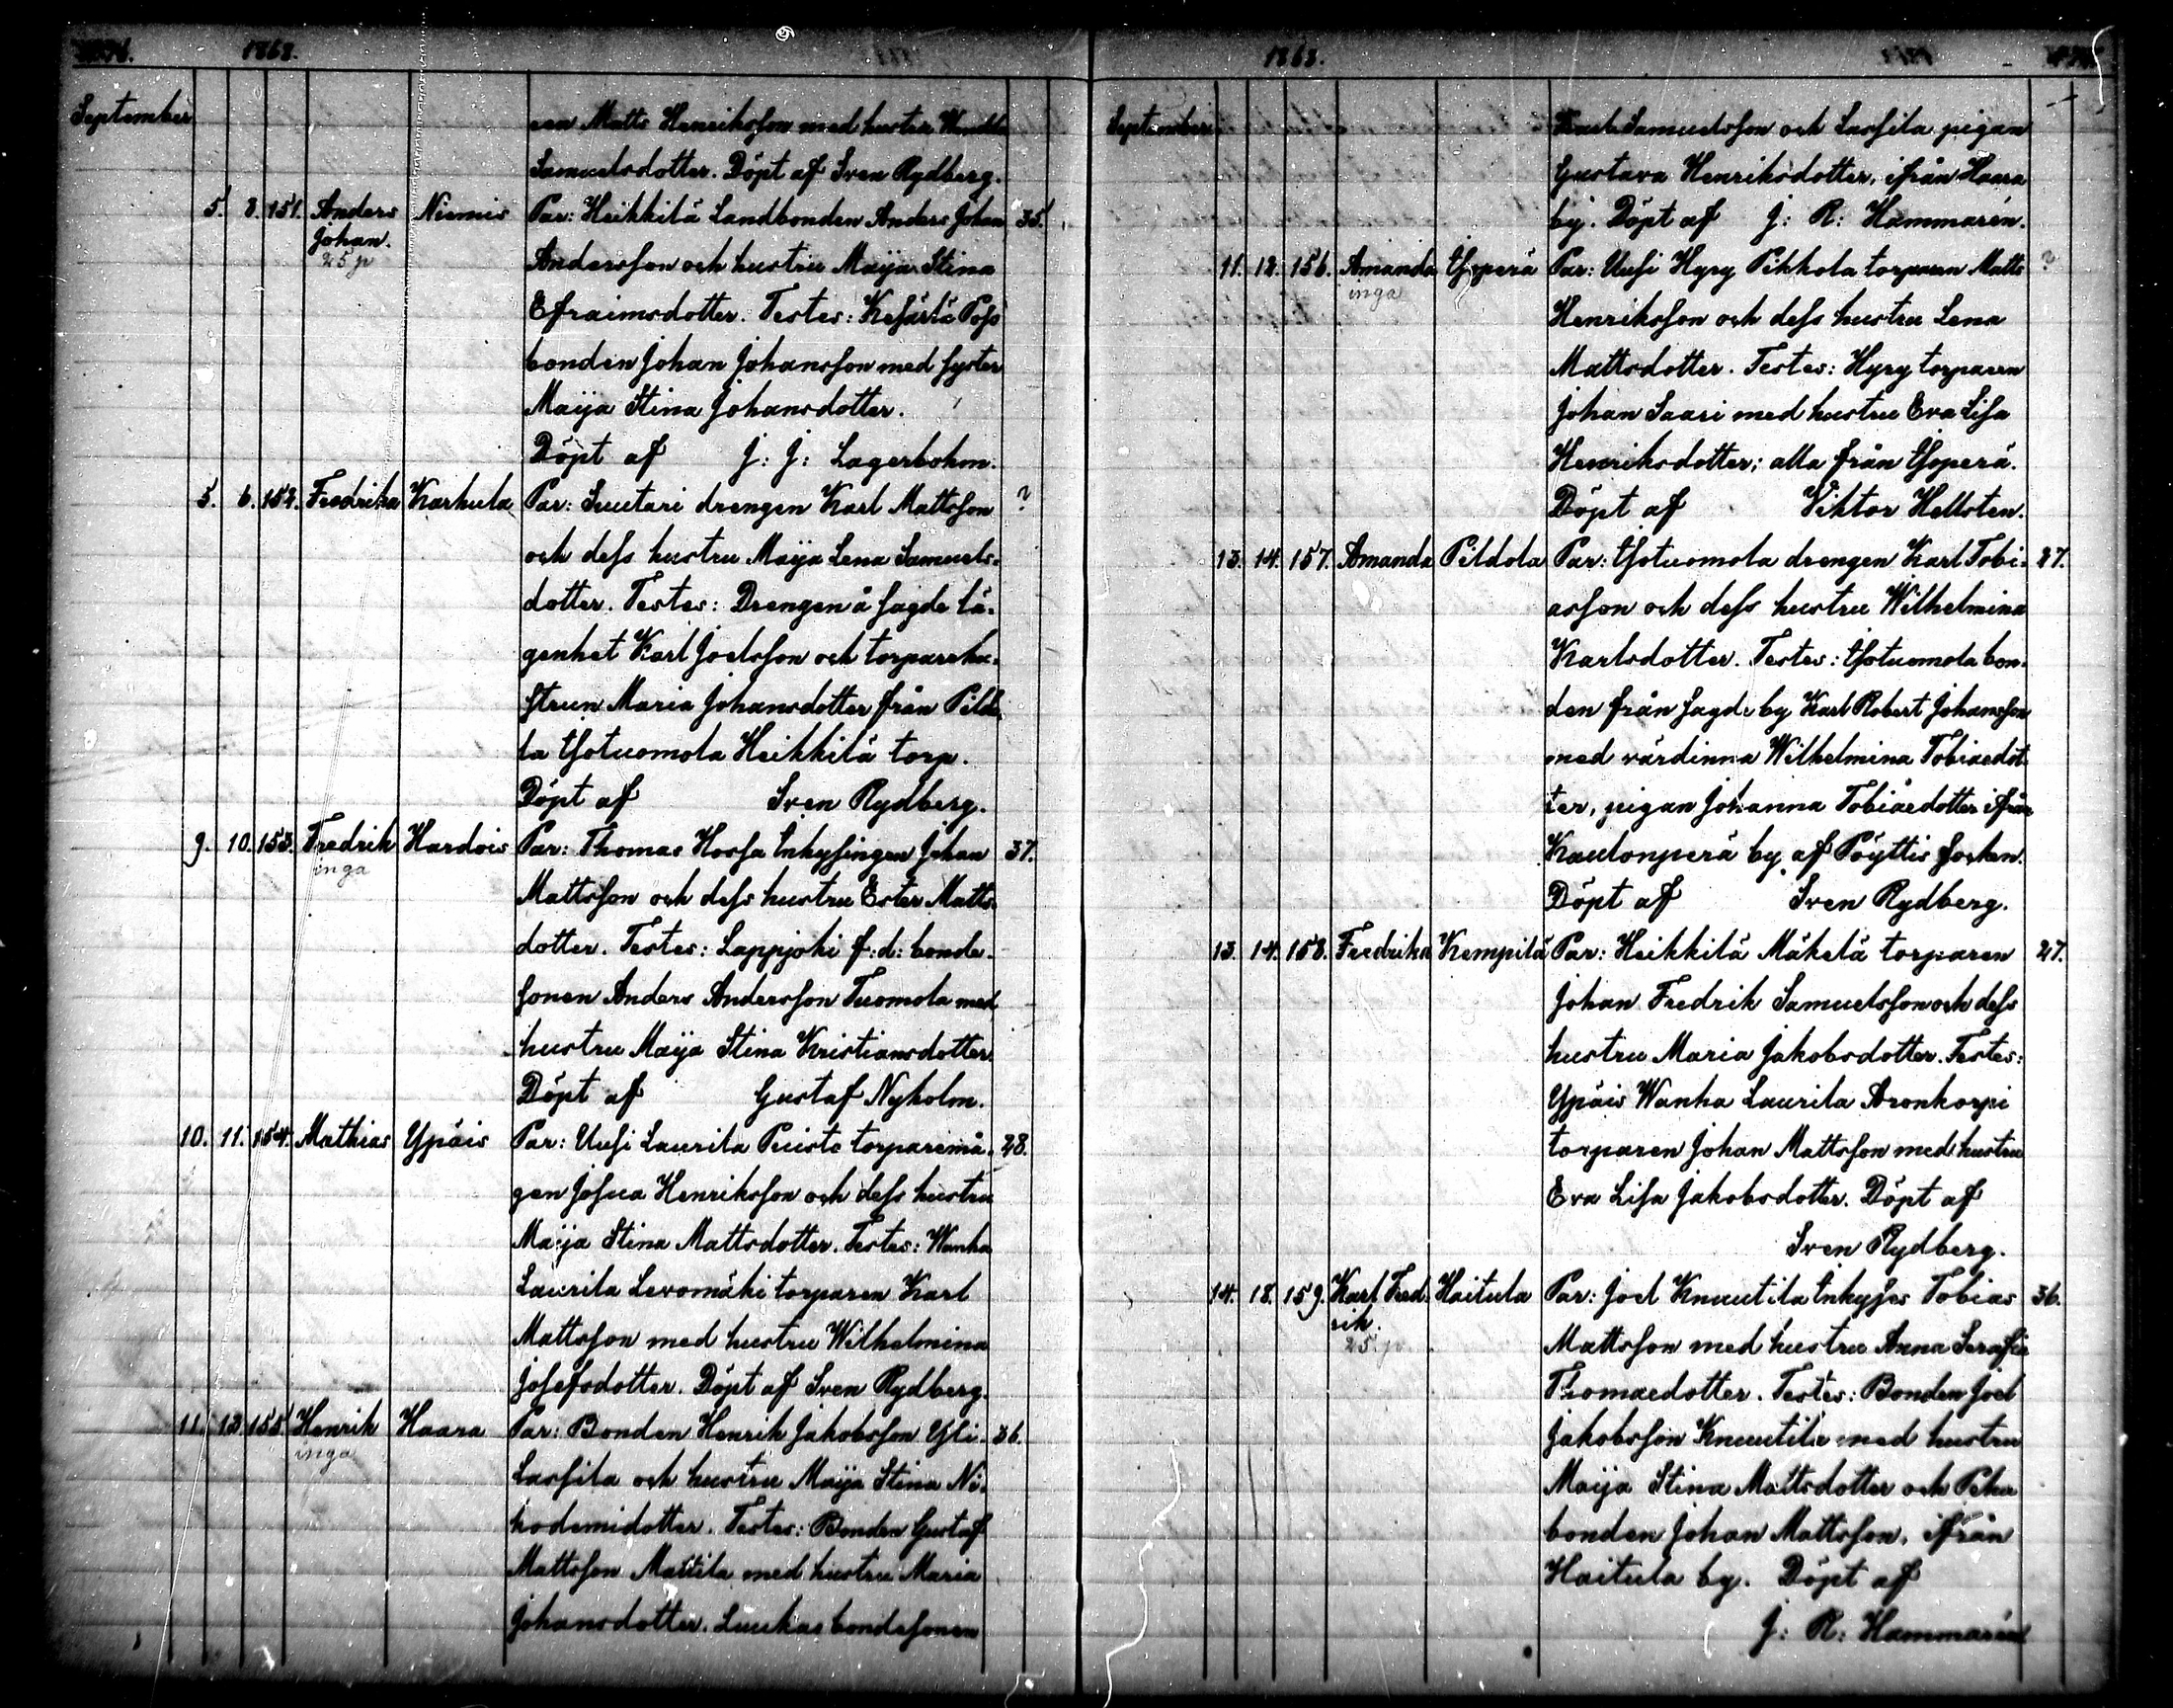 1868.
September
ren Matts Henriksson med hustru
Samuelsdotter. Döpt af Sven Rydberg.
5. 8. 151. Anders Niemis Par: Heikkilä Landbonden Anders Johan 35.
Johan.
25 p
Andersson och hustru Maija Stina
Efraimsdotter. Testes:
bonden Johan Johansson med syster
Maija Stina Johansdotter.
Döpt af J: J: Lagerbohm.
5. 6. 152. Fredrika Karhula Par: Suutari drengen Karl Mattsson ?
och dess hustru Maija Lena Samuels-
dotter. Testes: Drengen å sagde lä-
genhet Karl Joelsson och torparehu-
strun Maria Johansdotter från Pildo-
la Ysotuomola Heikkilä torp.
Döpt af Sven Rydberg.
9. 10. 153. Fredrik Hardois Par: Thomas Hossa Inhysingen Johan 37.
inga
Mattsson och dess hustru Ester Matts-
dotter. Testes: Lappjoki f:d: bonde-
sonen Anders Andersson Tuomola med
hustru Maija Stina Kristiansdotter
Döpt af Gustaf Nyholm.
10. 11. 154. Mathias Ypäis Par: Uusi Laurila Puisto torparemå- 28.
gen Josua Henriksson och dess hustru
Maija Stina Mattsdotter. Testes: Wanha
Laurila Levomäki torparen Karl
Mattsson med hustru Wilhelmina
Josefsdotter. Döpt af Sven Rydberg.
11. 13. 155. Henrik Haara Par: Bonden Henrik Jakobsson Yli- 36.
inga
Lassila och hustru Maija Stina Ni-
kodemidotter. Testes: Bonden Gustaf
Mattsson Mattila med hustru Maria
Johansdotter. Luukas bondesonen
1868.
September
Samuelsson och Lassila pigan
Gustava Henriksdotter, ifrån Haara
by. Döpt af J: R: Hammarén.
11. 12. 156. Amanda Ysperä Par: Uusi Hyry Pikkola torparen Matts ?
inga
Henriksson och dess hustru Lena
Mattsdotter. Testes: Hyry torparen
Johan Saari med hustru Eva Lisa
Henriksdotter; alla från Ysperä.
Döpt af Viktor Hellsten.
13. 14. 157. Amanda Pildola Par: Ysotuomola drengen Karl Tobi- 27.
asson och dess hustru Wilhelmina
Karlsdotter. Testes: Ysotuomola bon-
den från sagde by Karl Robert Johansson
med värdinna Wilhelmina Tobiædot-
ter, pigan Johanna Tobiædotter ifrån
Kautonperä by af Pöyttis socken.
Döpt af Sven Rydberg.
13. 14. 158. Fredrika Kempilä Par: Heikkilä Mäkelä torparen 27.
Johan Fredrik Samuelsson och dess
hustru Maria Jakobsdotter. Testes:
Ypäis Wanha Laurila Aronkorpi
torparen Johan Mattsson med hustru
Eva Lisa Jakobsdotter. Döpt af
Sven Rydberg.
14. 18. 159. Karl Fred- Haitula Par: Joel Knuutila Inhyses Tobias 36.
rik.
25 p
Mattsson med hustru Anna Serafia
Thomædotter. Testes: Bonden Joel
Jakobsson Knuutila med hustru
Maija Stina Mattsdotter och
bonden Johan Mattsson, ifrån
Haitula by. Döpt af
J: R: Hammarén